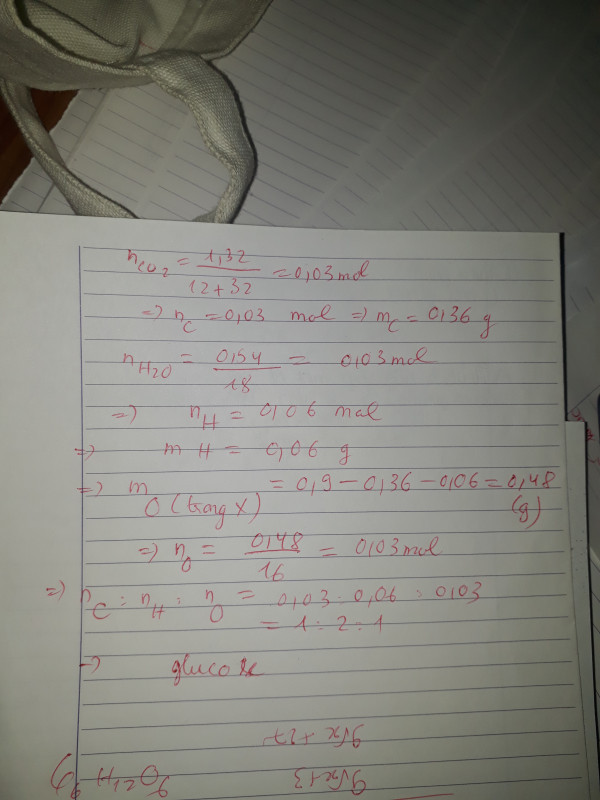 n_CO2 = 1,32 / 12+32 = 0,03 mol
=> n_C = 0,03 mol => m_C = 0,36 g
n_H2O = 0,54 / 18 = 0,03 mol
=> n_H = 0,06 mol
=> m H = 0,06 g
=> m_O (trong X) = 0,9 - 0,36 - 0,06 = 0,48 (g)
=> n_O = 0,48 / 16 = 0,03 mol
=> n_C : n_H : n_O = 0,03 : 0,06 : 0,03
= 1 : 2 : 1
=> glucose
C6 H12O6